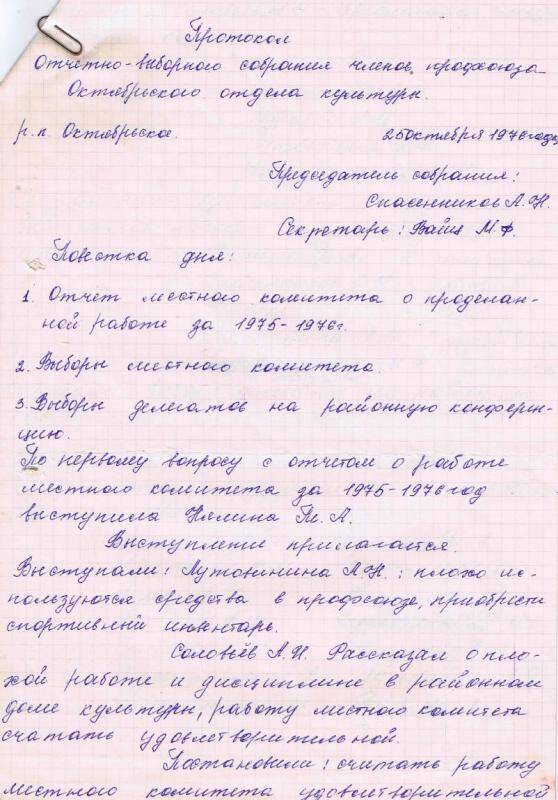 Протокол
Отчетно-выборного собрания членов профсоюза
Октябрьского отдела культуры.
р.п. Октябрьское. 25 октября 1976 года
Председатель собрания:
Спасенников А.Н.
Секретарь: М.Ф.
Повестка дня:
1. Отчет местного комитета о проделан-
ной работе за 1975-1976г.
2. Выборы местного комитета.
3. Выборы делегатов на районную конферен-
цию.
По первому вопросу с отчетом о работе
местного комитета за 1975-1976 год
выступила Нялина Т. А.
Выступление прилагается.
Выступали: Лутовинина А.Н.: плохо ис-
пользуются средства в профсоюзе, приобрести
спортивный инвентарь.
Соловьёв А.И. Рассказал о пло-
хой работе и дисциплине в районном
доме культуры, работу местного комитета
считать удовлетворительной.
Постановили: считать работу
местного комитета удовлетворительной